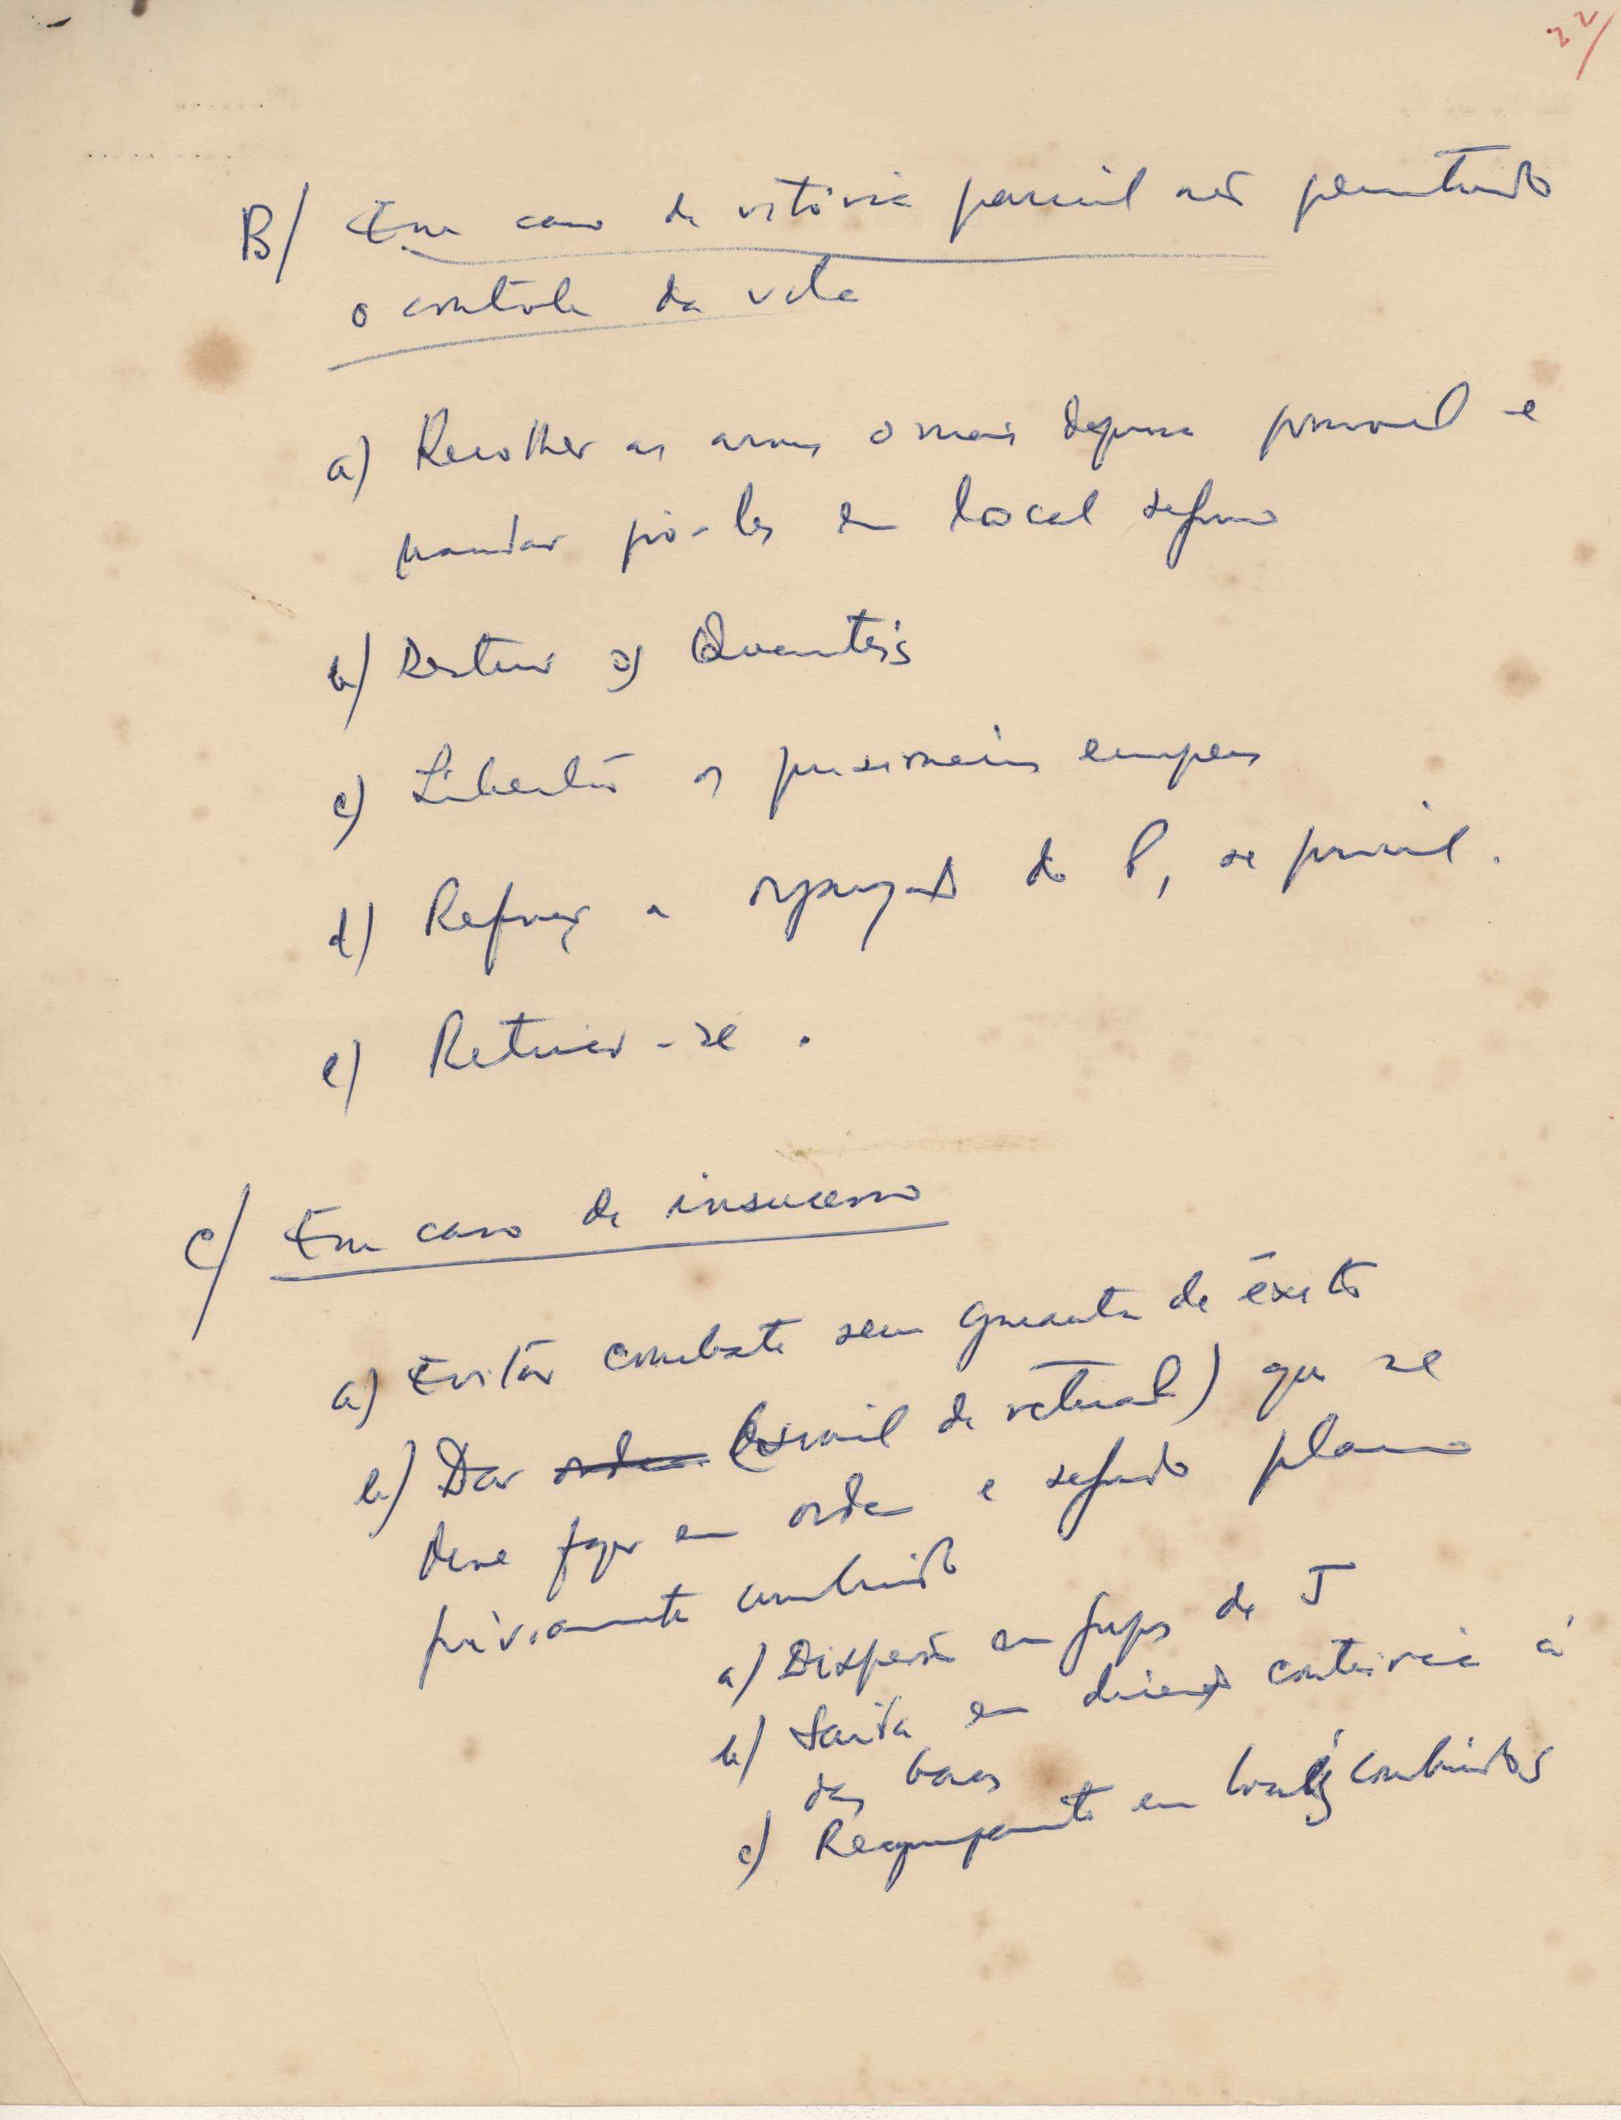 22/
B/ Em caso de vitória parcial não permitindo
o controle da vila
a) Recolher as armas o mais depressa possível e
mandar pô-las em local seguro
b) Destruir os Quarteis
c) Libertar os prisioneiros europeus
d) Reforçar a organização do P, se possível.
e) Retirar-se.
C/ Em caso de insucesso
a) Evitar combate sem garantia de êxito
b) Dar ordem (sinal de retirada) que se
deve fazer em ordem e segundo plano
préviamente combinado
a) Dispersão em grupos de 5
b) Saída em direcção contrária à
das bases
c) Reagrupamento em locais combinados